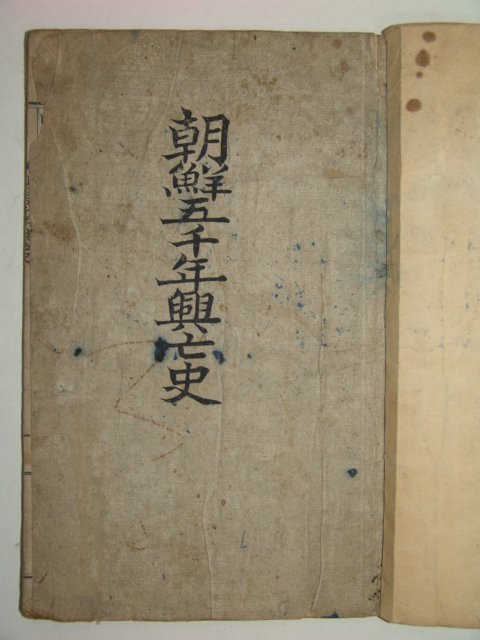 朝鮮五千年興亡史